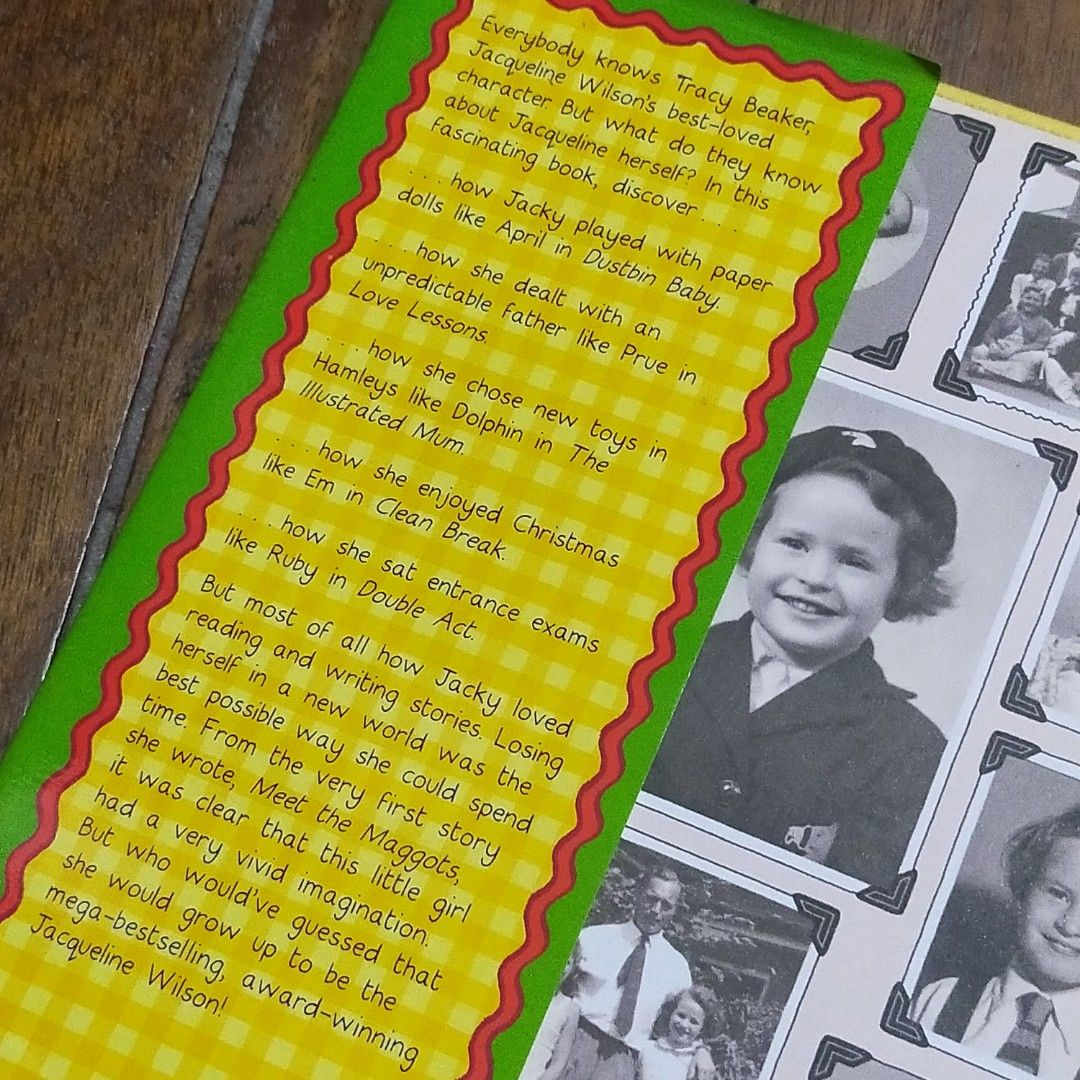 Everybody knows Tracy Beaker,
Jacqueline Wilson's best-loved
character. But what do they know
about Jacqueline herself? In this
fascinating book, discover . . .
. . . how Jacky played with paper
dolls like April in Dustbin Baby.
. . . how she dealt with an
unpredictable father like Prue in
Love Lessons.
. . . how she chose new toys in
Hamleys like Dolphin in The
Illustrated Mum.
. . . how she enjoyed Christmas
like Em in Clean Break.
. . . how she sat entrance exams
like Ruby in Double Act.
But most of all how Jacky loved
reading and writing stories. Losing
herself in a new world was the
best possible way she could spend
time. From the very first story
she wrote, Meet the Maggots,
it was clear that this little girl
had a very vivid imagination.
But who would've guessed that
she would grow up to be the
mega-bestselling, award-winning
Jacqueline Wilson!